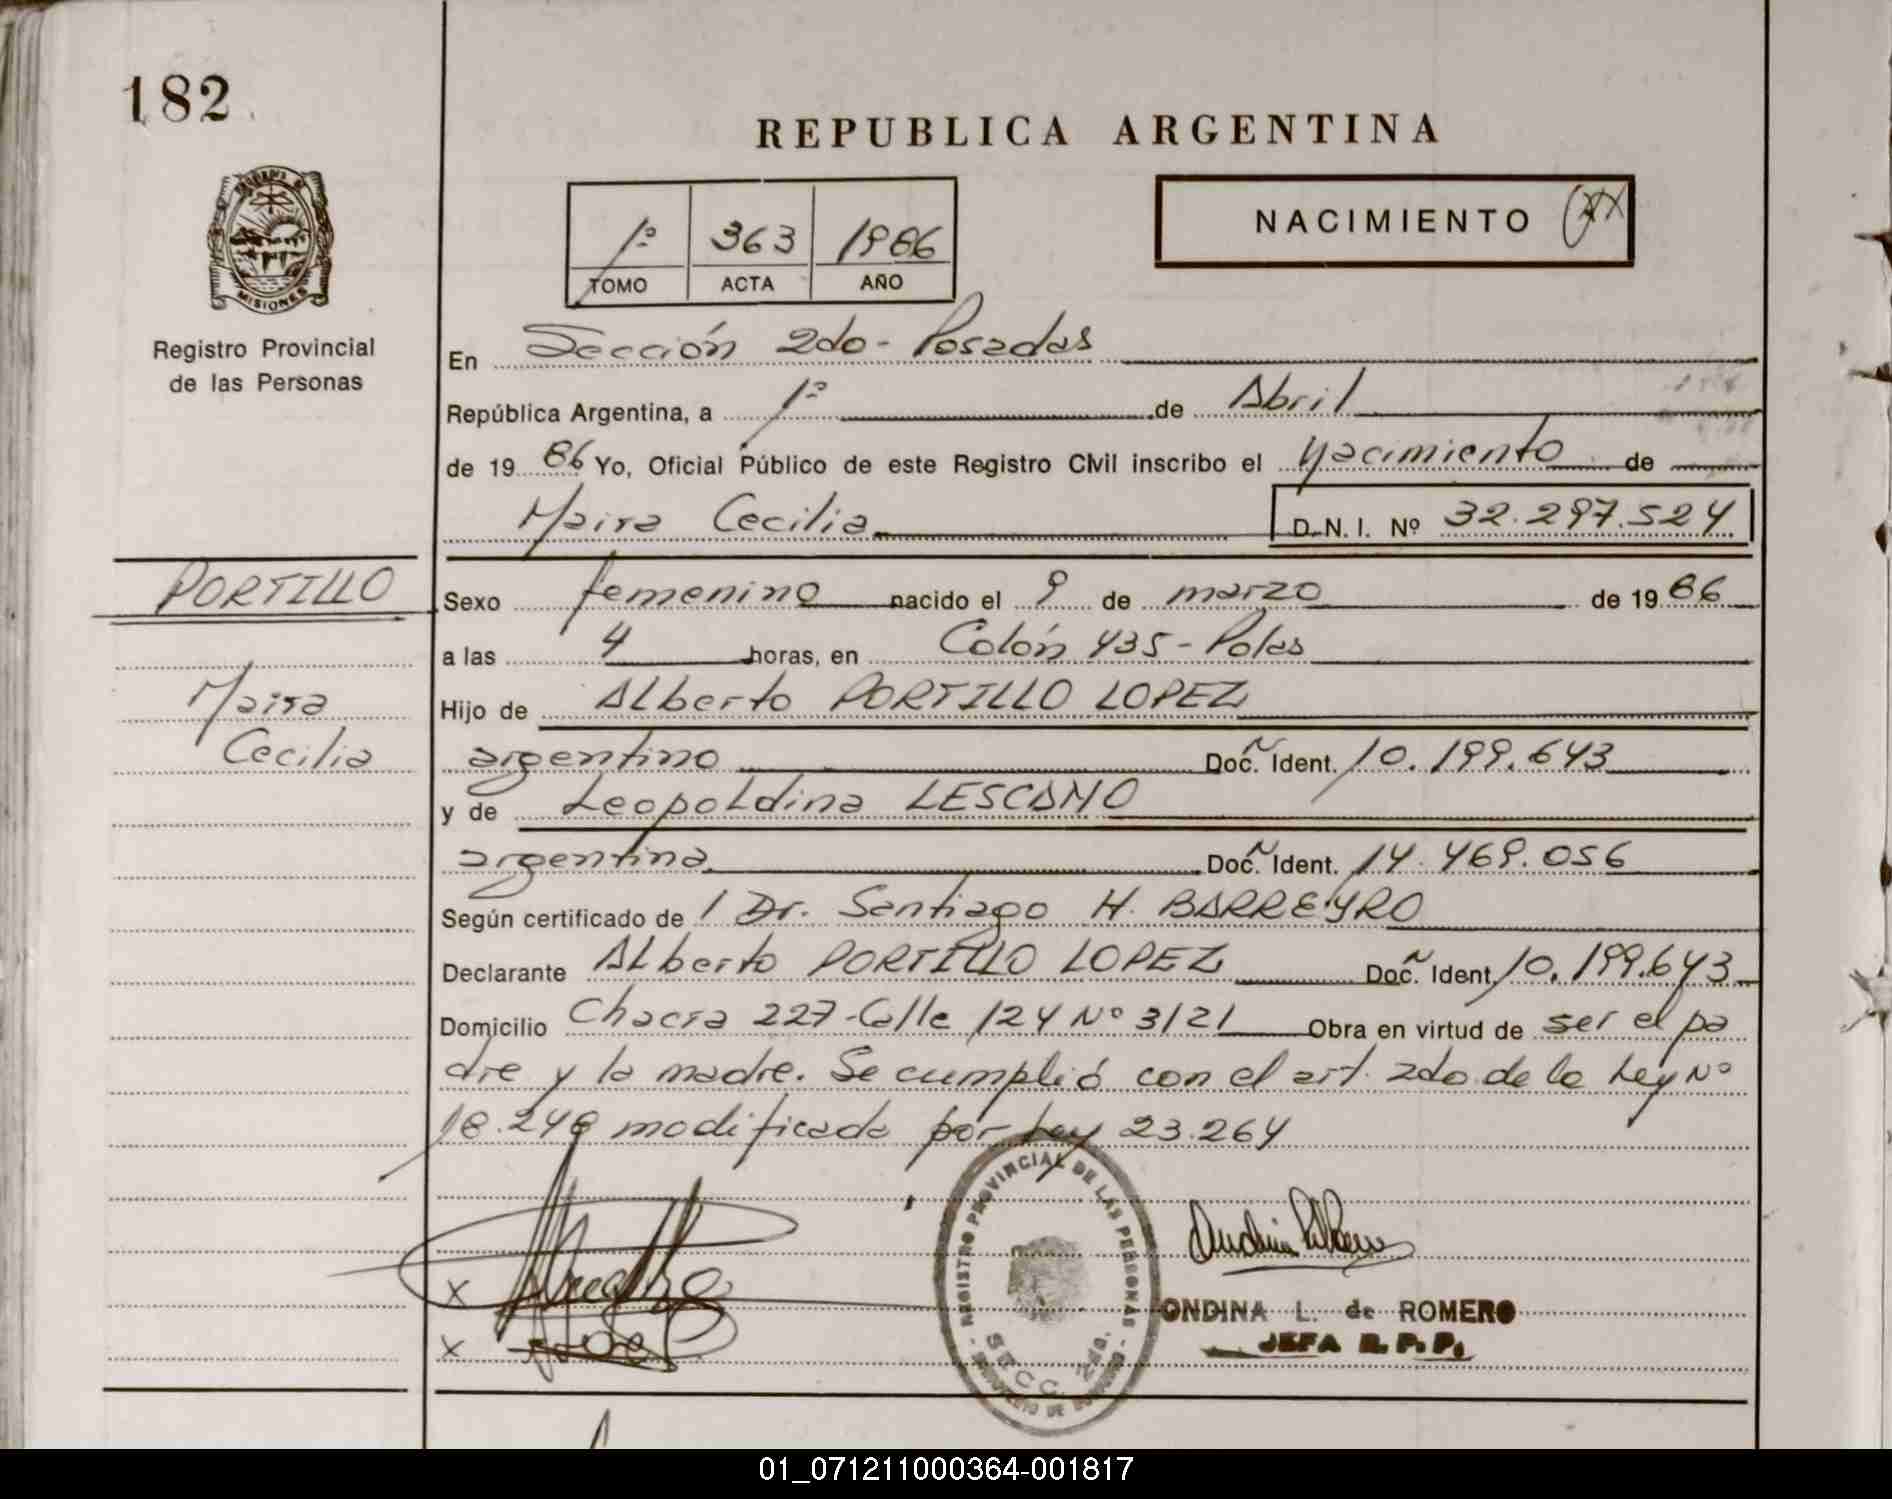 182
REPUBLICA ARGENTINA
MISIONES
Registro Provincial
de las Personas
1º 363 1986
TOMO ACTA AÑO
NACIMIENTO
En Sección 2do - Posadas
República Argentina, a 1º de Abril
de 1986 Yo, Oficial Público de este Registro Civil inscribo el Nacimiento de
Maira Cecilia D.N.I. Nº 32.297.524
PORTILLO
Maira
Cecilia
Sexo femenino nacido el 9 de marzo de 1986
a las 4 horas, en Colón 435 - Pdas
Hijo de Alberto PORTILLO LOPEZ
argentino Doc. Ident. 10.199.643
y de Leopoldina LESCANO
argentina Doc. Ident. 14.469.056
Según certificado de l Dr. Santiago H. BARREYRO
Declarante Alberto PORTILLO LOPEZ Doc. Ident. 10.199.643
Domicilio Chacra 227 - Calle 124 Nº 3121 Obra en virtud de ser el pa
dre y la madre. Se cumplió con el art. 2do de la Ley Nº
18.248 modificada por Ley 23.264
x
x
REGISTRO PROVINCIAL DE LAS PERSONAS
SECC. 2da.
ONDINA L. de ROMERO
JEFA R.P.P.
01_071211000364-001817